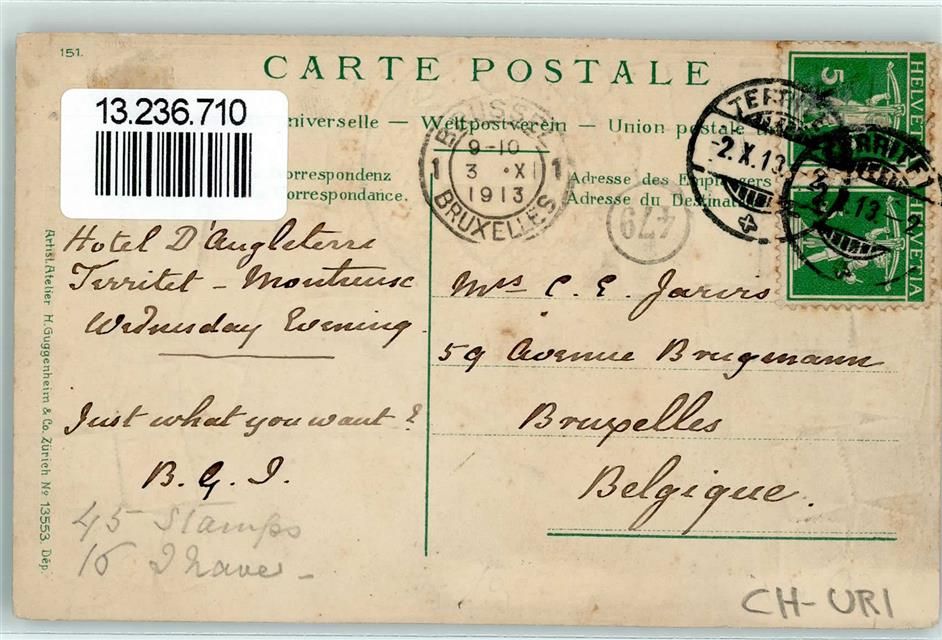 151.
CARTE POSTALE
13.236.710
niverselle — Weltpostverein — Union postale u
orrespondenz
orrespondance.
Adresse des Empfängers
Adresse du Destina
BRUSSEL
9-10
3 · XI
1 1
1913
BRUXELLES
TERRITET
-2.X.13.
TERRITET
HELVETIA
5
HELVETIA
479
Hotel D'Angleterre
Territet - Montreux
Wednesday Evening.
Just what you want?
B. G. J.
45 Stamps
16 I have -
Mrs C. E. Jarvis
59 Avenue Brugmann
Bruxelles
Belgique.
Artist. Atelier H. Guggenheim & Co. Zürich No 13553. Dép.
CH-URI